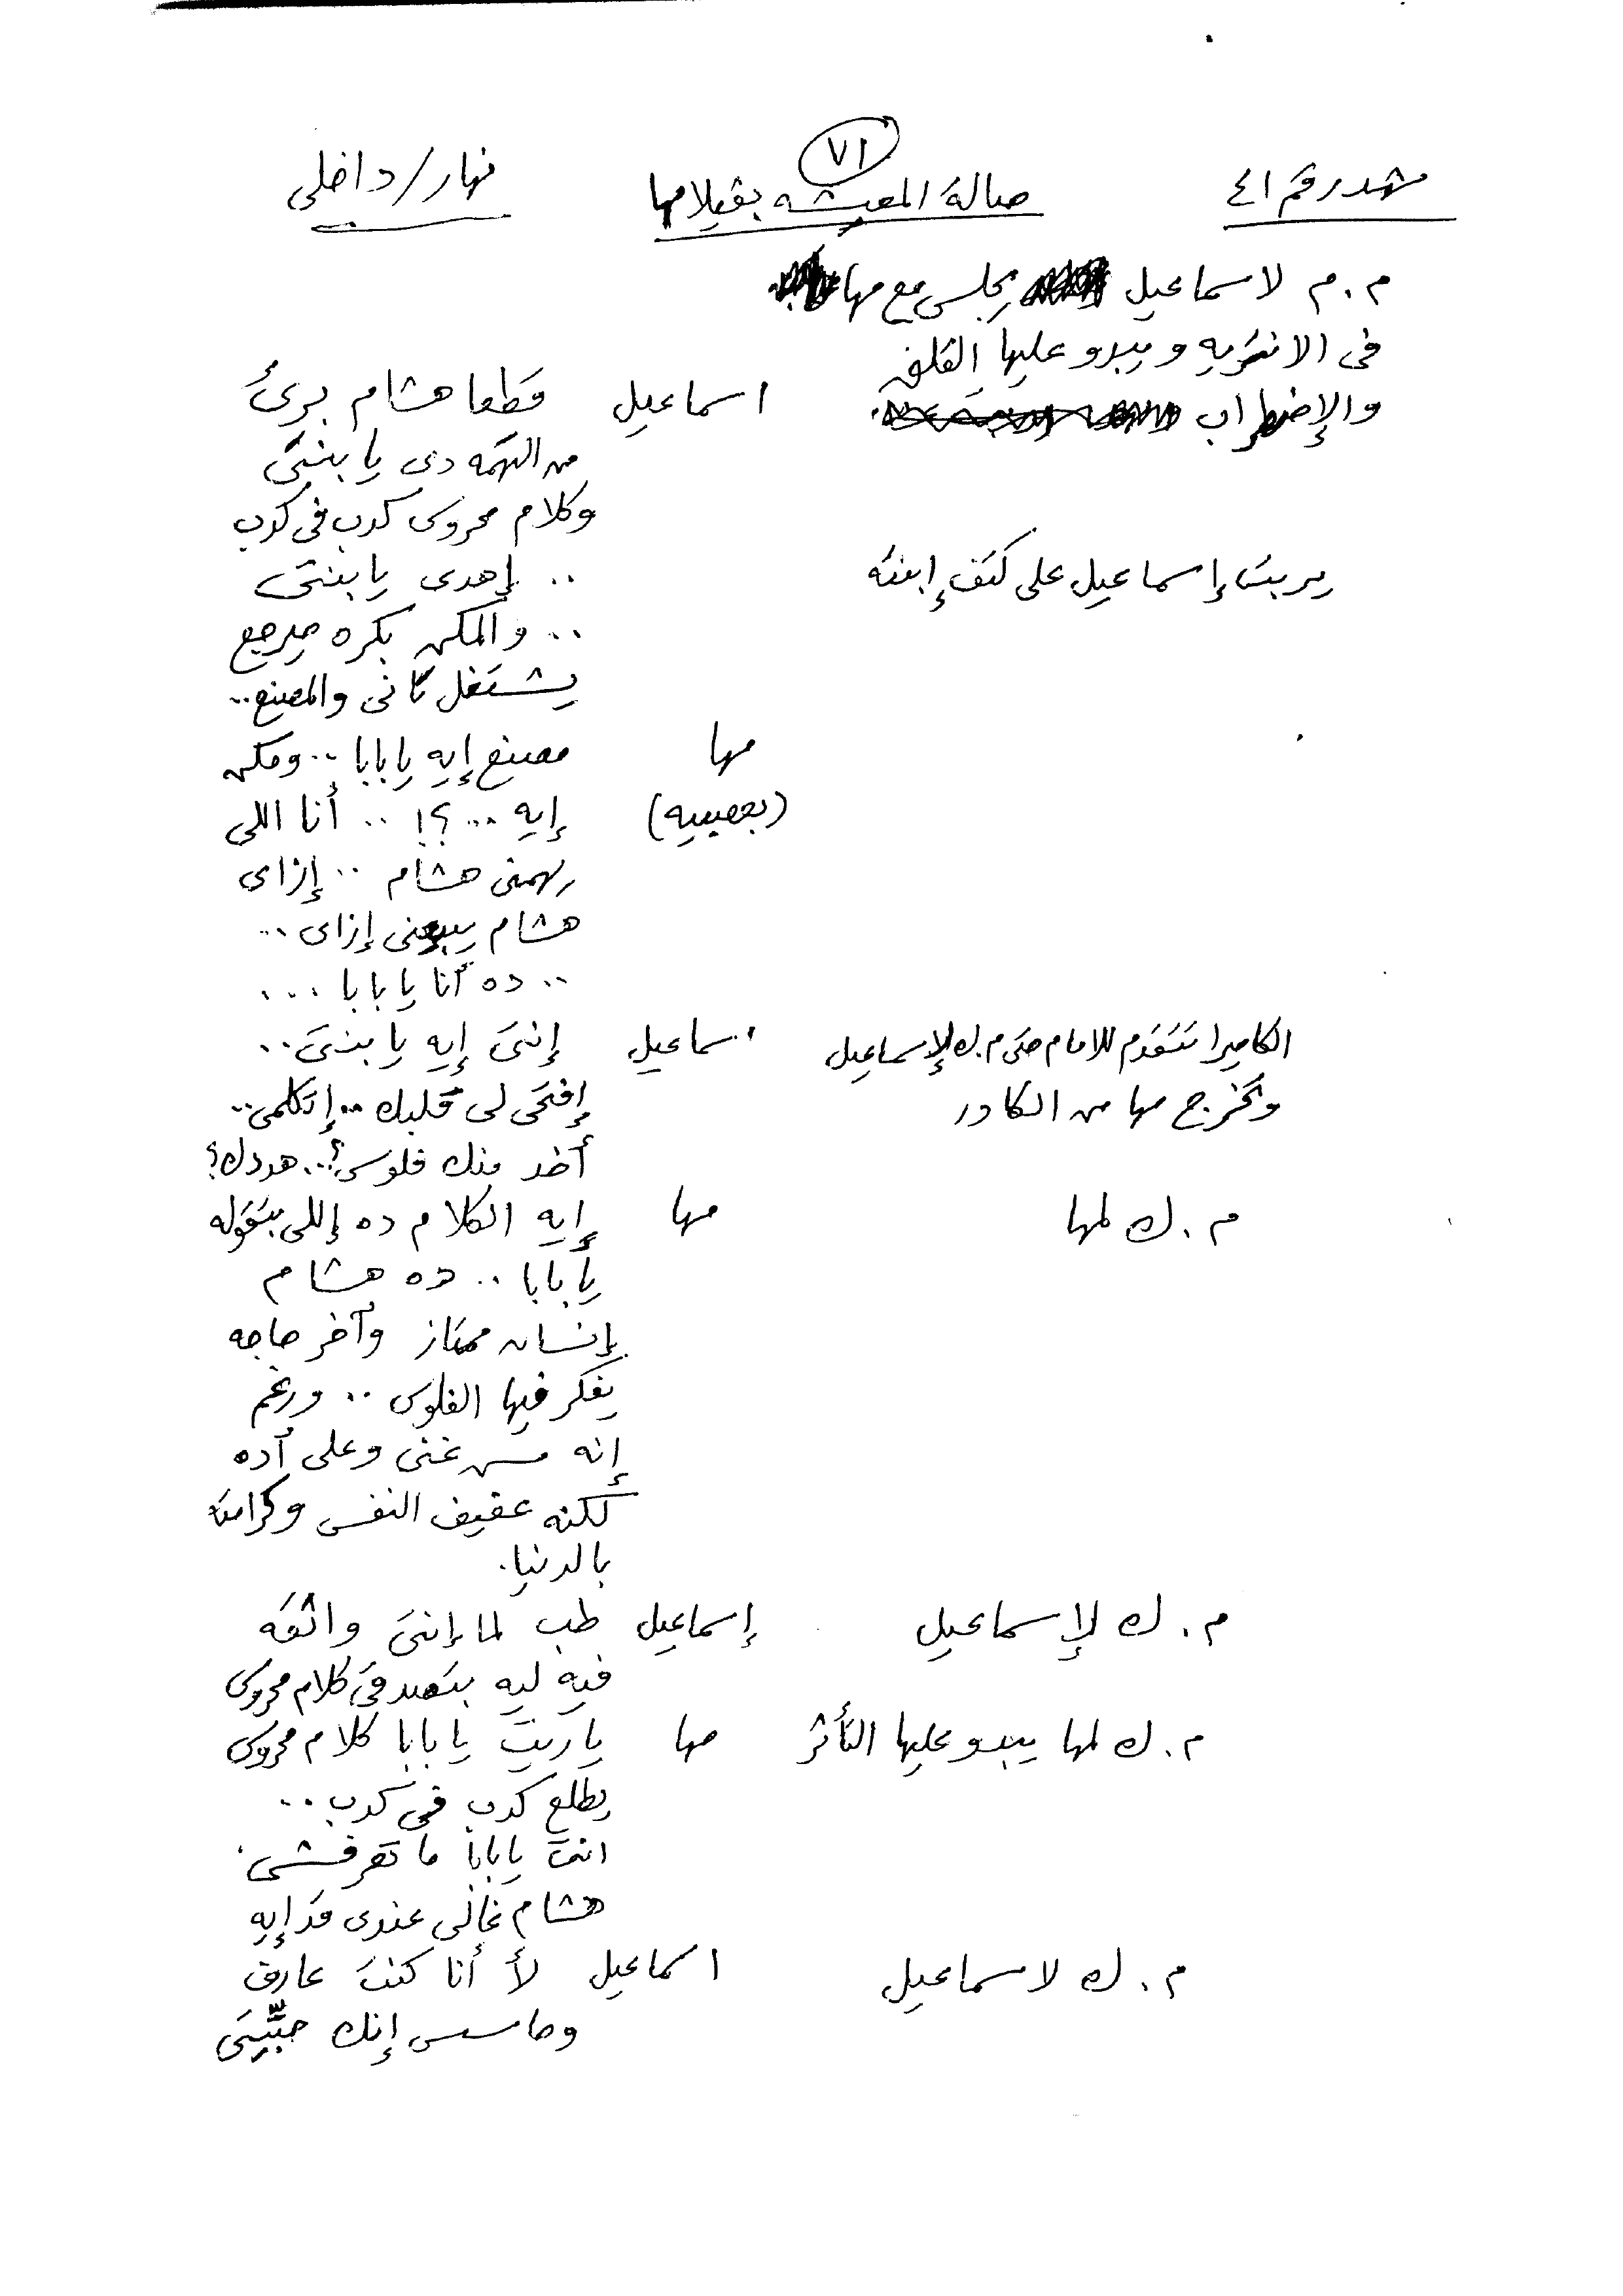 ٧١
مشهد رقم ٤١ صالة المعيشه بفيلا مها نهار/داخلى
م.م لاسماعيل يجلس مع مها
فى الانتريه ويبدو عليها القلق
والإضطراب اسماعيل قطعا هشام برئ
من التهمه دى يا بنتى
وكلام محروس كدب فى كدب
يربت إسماعيل على كتف إبنته .. إهدى يا بنتى
.. والمكن بكره حيرجع
يشتغل تانى والمصنع..
مها مصنع إيه يا بابا .. ومكن
(بعصبيه) إيه ...؟! .. أنا اللى
يهمنى هشام .. إزاى
هشام يبيعنى إزاى ..
.. ده أنا يا بابا ...
الكاميرا تتقدم للامام حتى م.ك لإسماعيل اسماعيل إنتى إيه يا بنتى..
وتخرج مها من الكادر إفتحى لى قلبك .. إتكلمى..
أخد منك فلوس؟.. هددك؟
م.ك لمها مها إيه الكلام ده إللى بتقوله
يا بابا .. ده هشام
إنسان ممتاز وآخر حاجه
يفكر فيها الفلوس .. ورغم
إنه مش غنى وعلى أده
لكنه عفيف النفس وكرامته
بالدنيا.
م.ك لإسماعيل إسماعيل طب لما إنتى واثقه
فيه ليه بتصدقى كلام محروس
م.ك لمها يبدو عليها التأثر مها ياريت يا بابا كلام محروس
يطلع كدب فى كدب ..
انت يا بابا ما تعرفش.
هشام غالى عندى قد إيه
م.ك لاسماعيل اسماعيل لأ أنا كنت عارف
وحاسس إنك حبيّتى